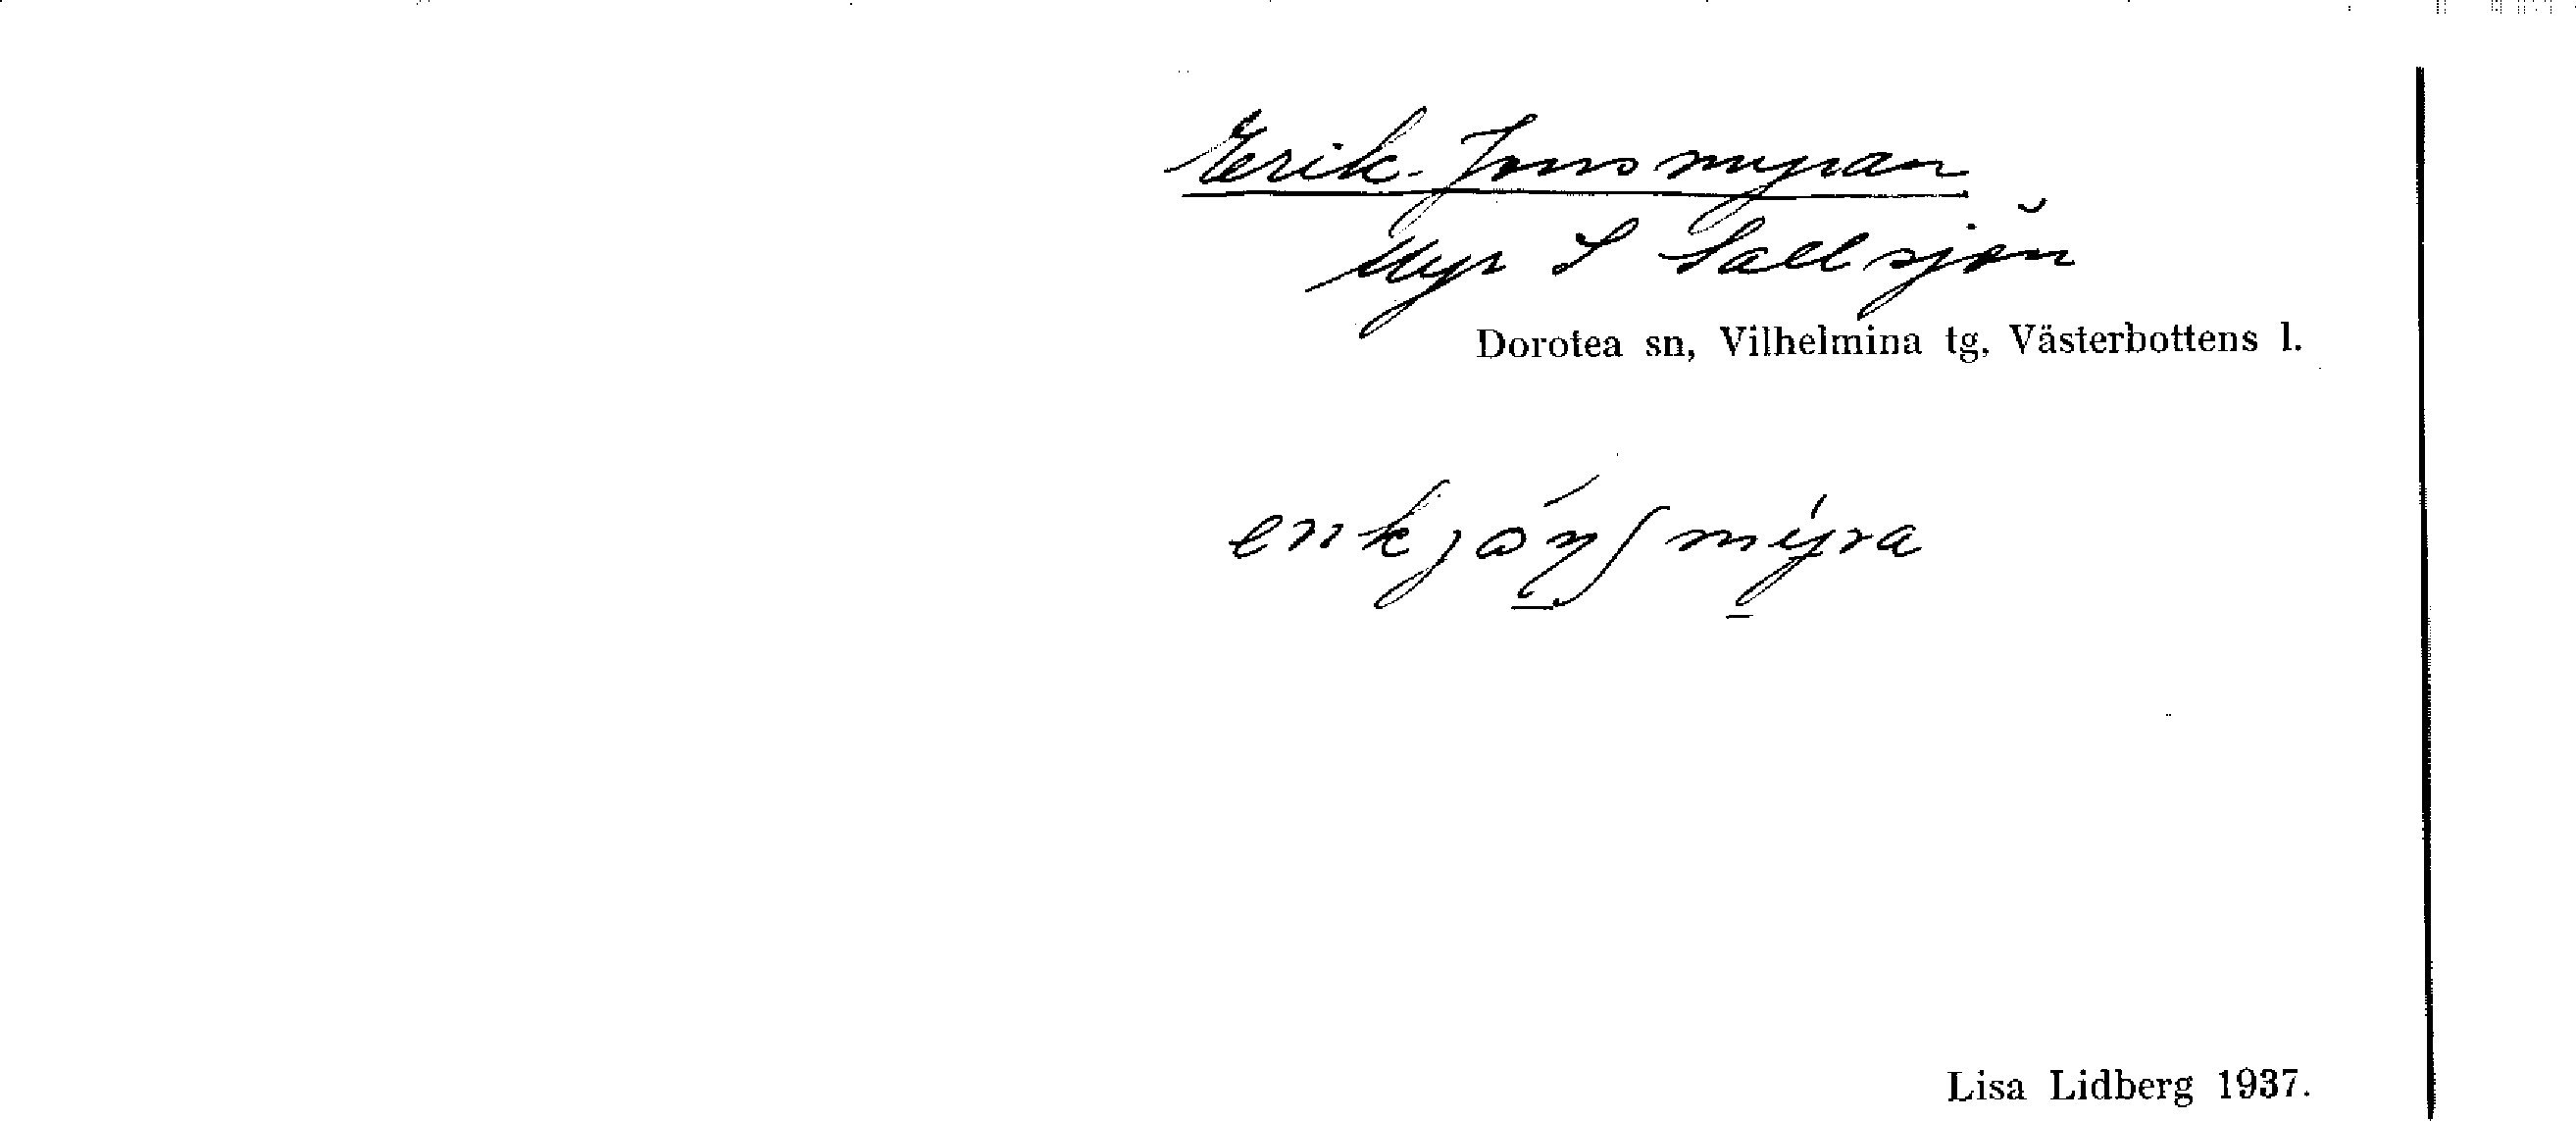 Erik-Jonsmyran
Myr S Sallsjön
Dorotea sn, Vilhelmina tg, Västerbottens l.
Lisa Lidberg 1937.